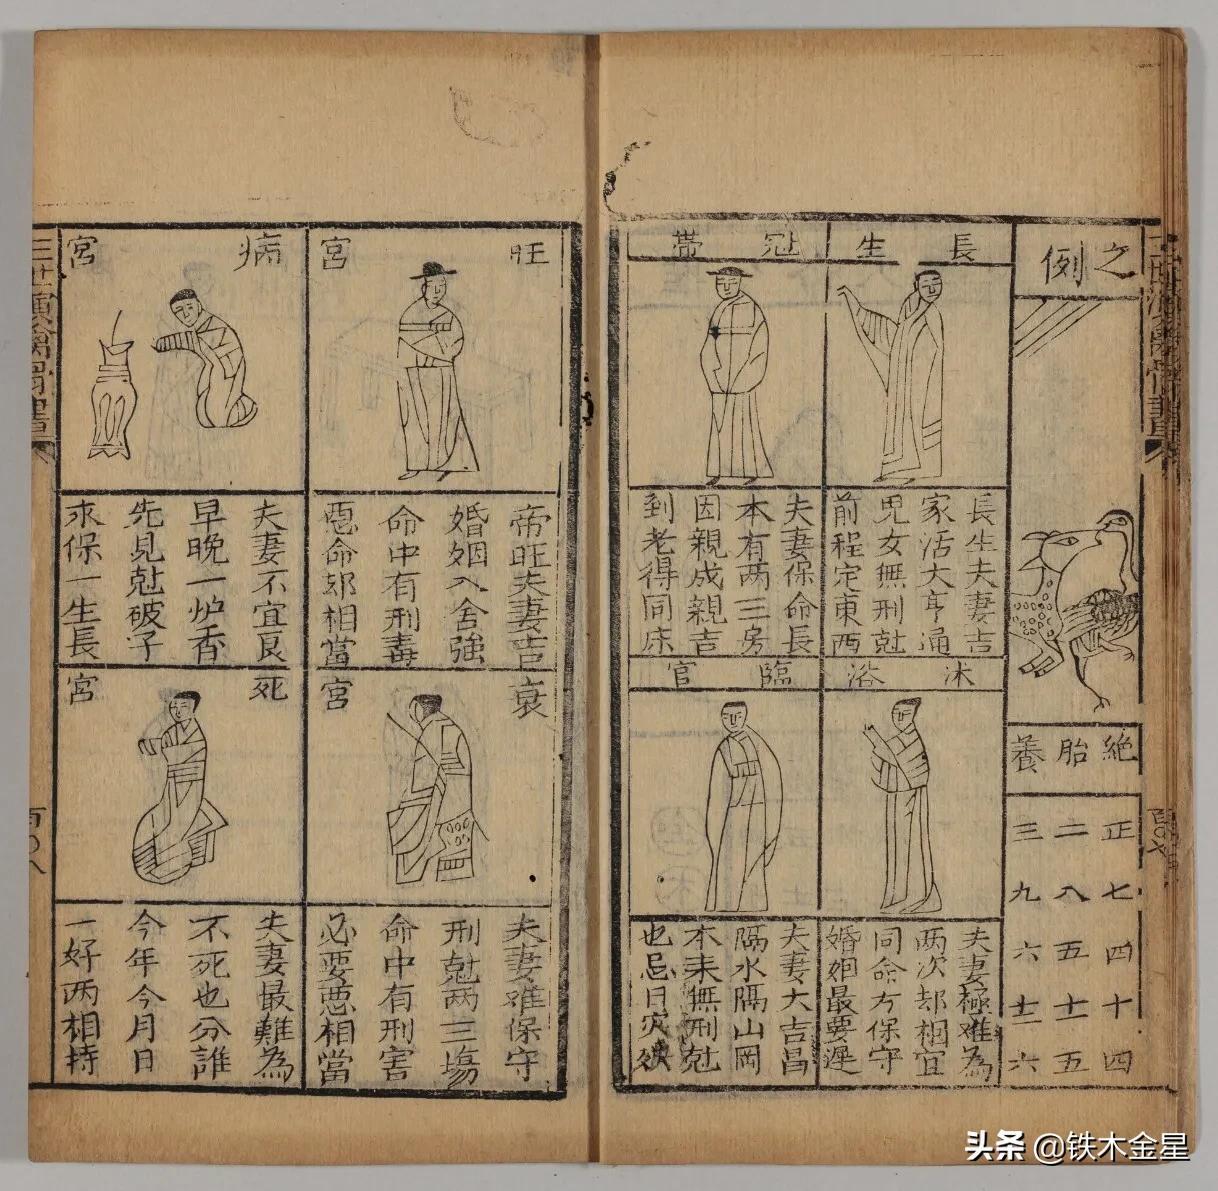 之
例
絕 胎 養
正 七 四 十 四
二 八 五 十一 五
三 九 六 十二 六
長生
長生夫妻吉
家活大亨通
児女無刑尅
前程定東西
冠帶
夫妻保命長
本有两三房
因親成親吉
到老得同床
沐浴
夫妻極难為
两次却相宜
同命方保守
婚姻最要遲
臨官
夫妻大吉昌
隔水隔山岡
本来無刑尅
也忌日灾殃
旺宮
帝旺夫妻吉
婚姻入舍強
命中有刑毒
惡命却相當
病宮
夫妻不宜良
早晚一炉香
先見尅破子
求保一生長
衰宮
夫妻难保守
刑尅两三塲
命中有刑害
必要惡相當
死宮
夫妻最難為
不死也分誰
今年今月日
一好两相持
三世演禽
百〇八
头条 @铁木金星